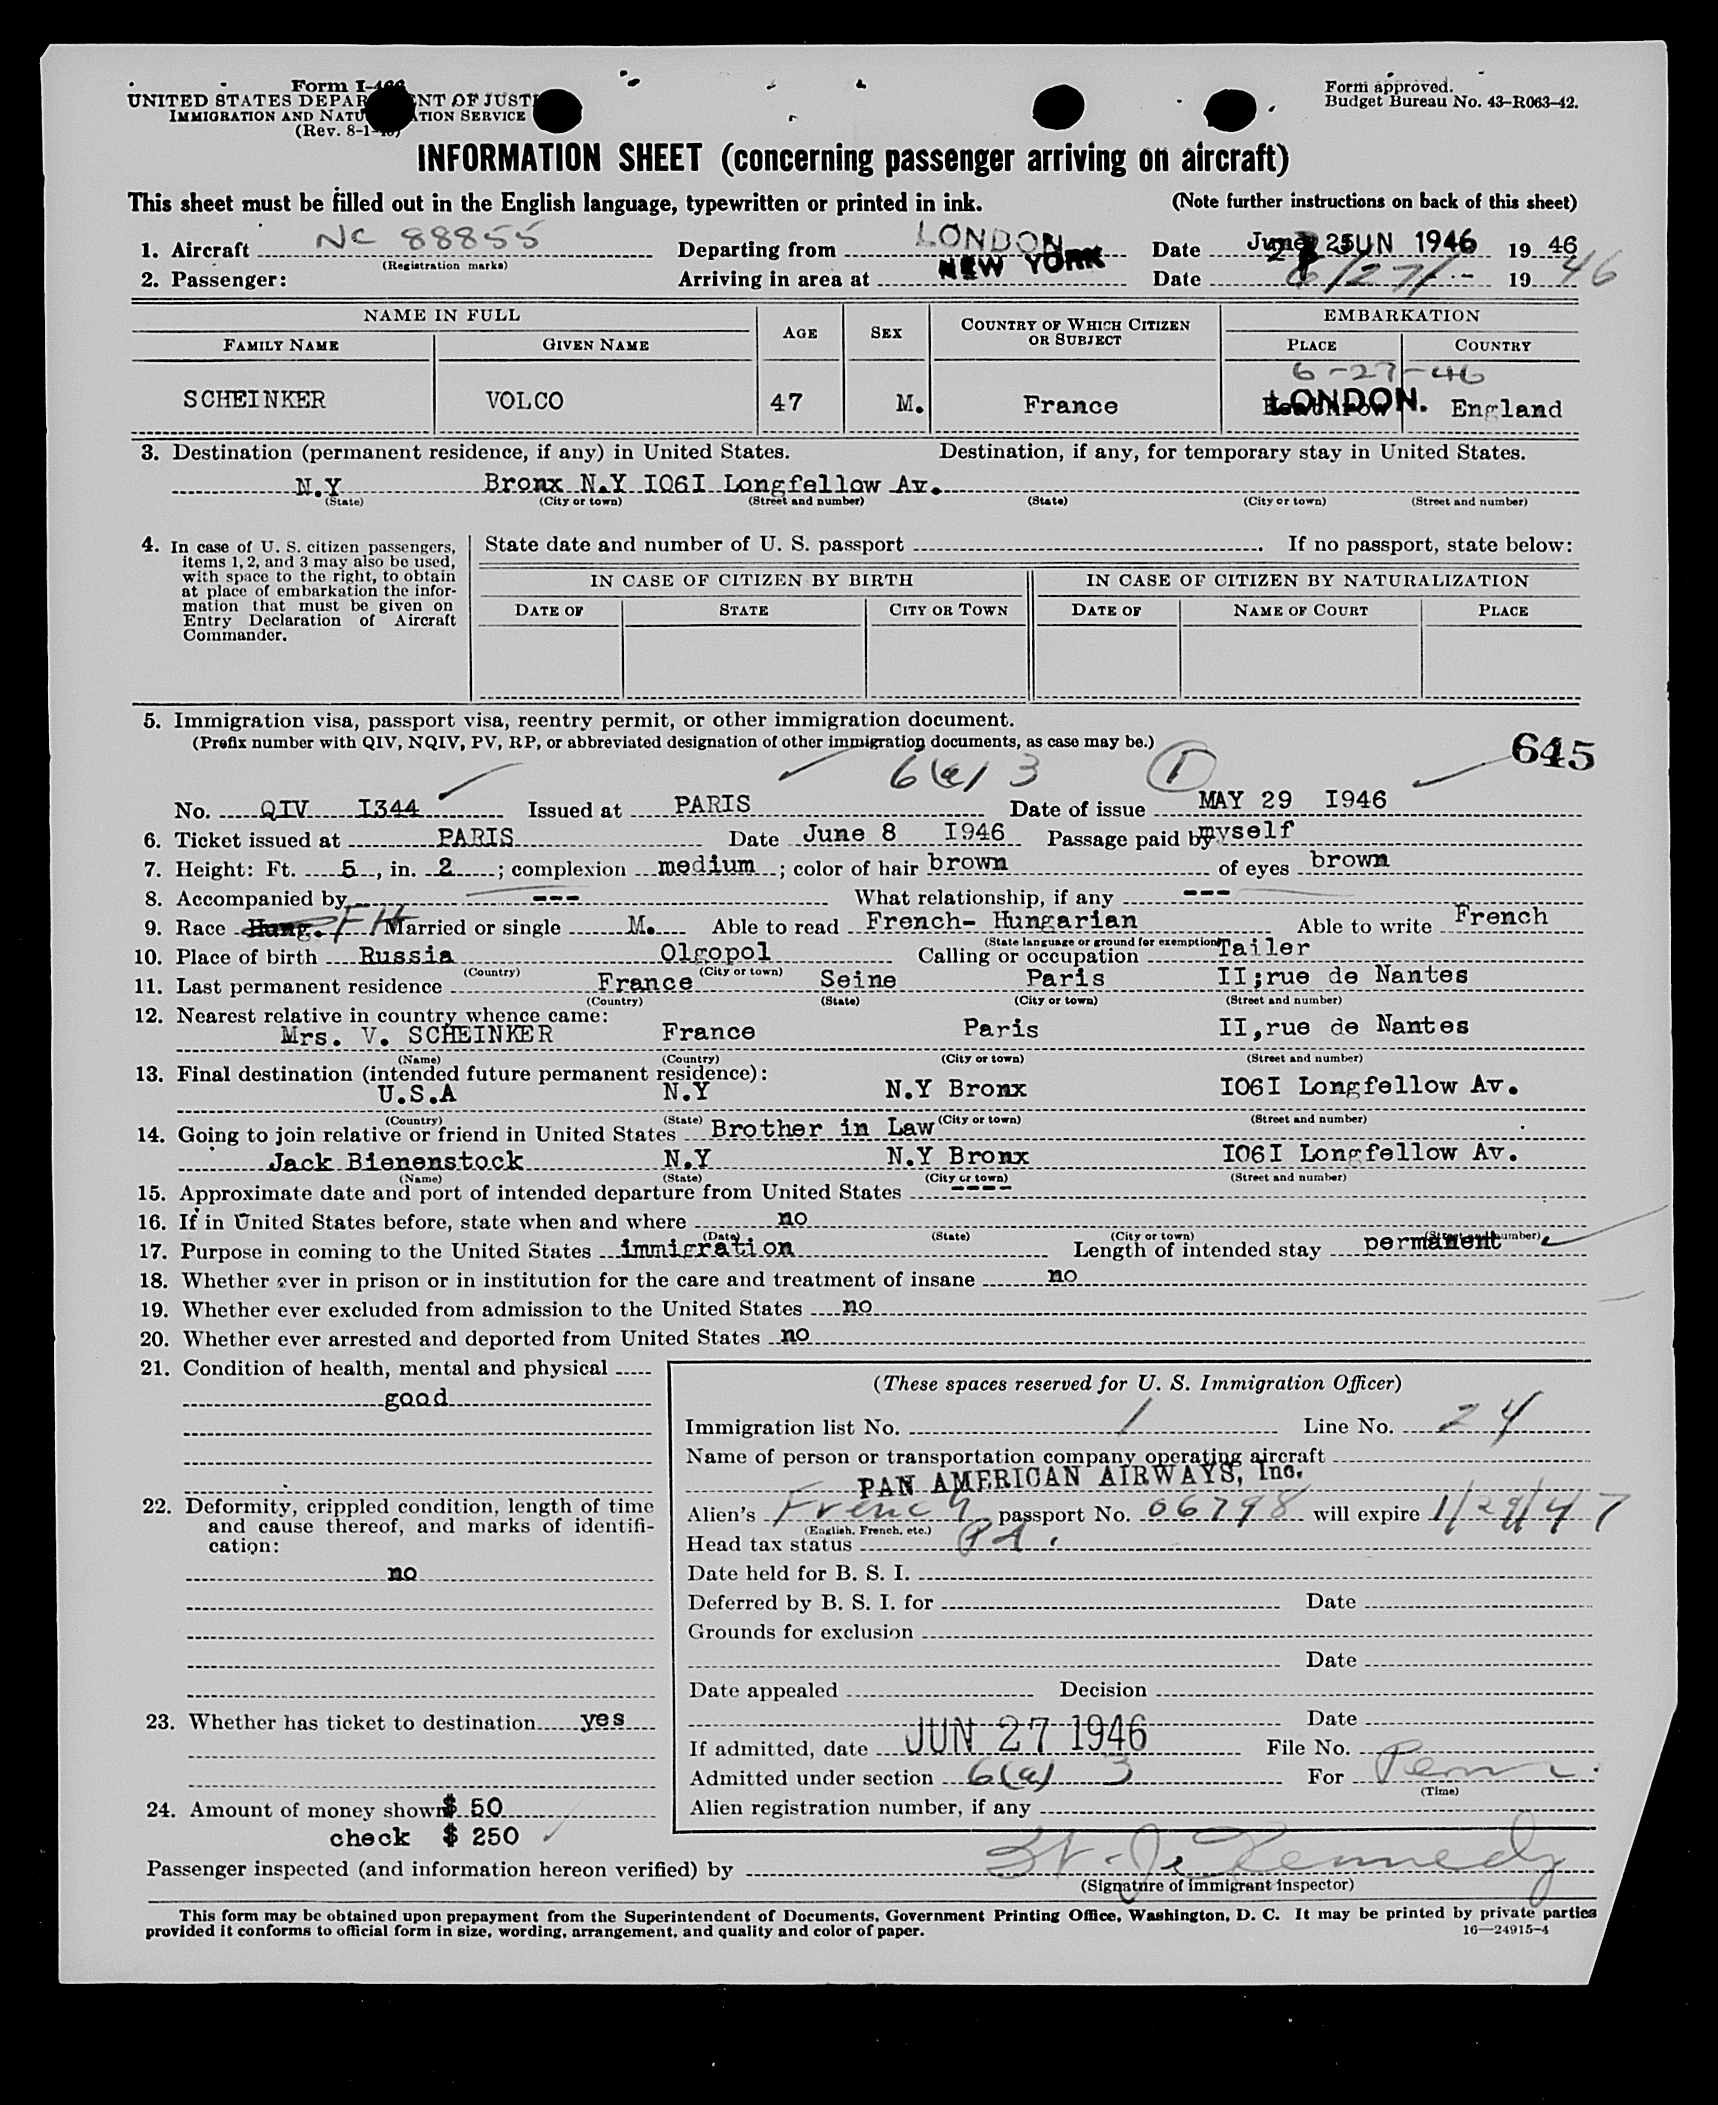 Form I-466
UNITED STATES DEPARTMENT OF JUSTICE
IMMIGRATION AND NATURALIZATION SERVICE
(Rev. 8-1-
Form approved.
Budget Bureau No. 43-R063-42.
INFORMATION SHEET (concerning passenger arriving on aircraft)
This sheet must be filled out in the English language, typewritten or printed in ink. (Note further instructions on back of this sheet)
1. Aircraft NC 88855 Departing from LONDON Date June JUN 1946 19 46
(Registration marks)
2. Passenger: Arriving in area at NEW YORK Date 6/27/ 19 46
NAME IN FULL AGE SEX COUNTRY OF WHICH CITIZEN OR SUBJECT EMBARKATION
FAMILY NAME GIVEN NAME PLACE COUNTRY
6-27-46
SCHEINKER VOLCO 47 M. France LONDON. England
3. Destination (permanent residence, if any) in United States. Destination, if any, for temporary stay in United States.
N.Y Bronx N.Y I06I Longfellow Av.
(State) (City or town) (Street and number) (State) (City or town) (Street and number)
4. In case of U. S. citizen passengers, items 1, 2, and 3 may also be used, with space to the right, to obtain at place of embarkation the information that must be given on Entry Declaration of Aircraft Commander.
State date and number of U. S. passport . If no passport, state below:
IN CASE OF CITIZEN BY BIRTH IN CASE OF CITIZEN BY NATURALIZATION
DATE OF STATE CITY OR TOWN DATE OF NAME OF COURT PLACE
5. Immigration visa, passport visa, reentry permit, or other immigration document.
(Prefix number with QIV, NQIV, PV, RP, or abbreviated designation of other immigration documents, as case may be.)
645
6(a) 3
No. QIV I344 Issued at PARIS Date of issue MAY 29 I946
6. Ticket issued at PARIS Date June 8 I946 Passage paid by myself
7. Height: Ft. 5, in. 2; complexion medium; color of hair brown of eyes brown
8. Accompanied by --- What relationship, if any ---
9. Race Hung. FH Married or single M. Able to read French- Hungarian Able to write French
(State language or ground for exemption)
10. Place of birth Russia Olgopol Calling or occupation Tailer
(Country) (City or town)
11. Last permanent residence France Seine Paris II;rue de Nantes
(Country) (State) (City or town) (Street and number)
12. Nearest relative in country whence came:
Mrs. V. SCHEINKER France Paris II,rue de Nantes
(Name) (Country) (City or town) (Street and number)
13. Final destination (intended future permanent residence):
U.S.A N.Y N.Y Bronx I06I Longfellow Av.
(Country) (State) (City or town) (Street and number)
14. Going to join relative or friend in United States Brother in Law
Jack Bienenstock N.Y N.Y Bronx I06I Longfellow Av.
(Name) (State) (City or town) (Street and number)
15. Approximate date and port of intended departure from United States ----
16. If in United States before, state when and where no
(Date) (State) (City or town) (Street and number)
17. Purpose in coming to the United States immigration Length of intended stay permanent
18. Whether ever in prison or in institution for the care and treatment of insane no
19. Whether ever excluded from admission to the United States no
20. Whether ever arrested and deported from United States no
21. Condition of health, mental and physical
good
22. Deformity, crippled condition, length of time and cause thereof, and marks of identification:
no
23. Whether has ticket to destination yes
24. Amount of money shown $ 50
check $ 250
(These spaces reserved for U. S. Immigration Officer)
Immigration list No. 1 Line No. 24
Name of person or transportation company operating aircraft
PAN AMERICAN AIRWAYS, Inc.
Alien's French passport No. 06798 will expire 1/29/47
(English, French, etc.)
Head tax status
Date held for B. S. I.
Deferred by B. S. I. for Date
Grounds for exclusion
Date
Date appealed Decision
Date
If admitted, date JUN 27 1946 File No.
Admitted under section 6(a) 3 For Perm.
(Time)
Alien registration number, if any
Passenger inspected (and information hereon verified) by Kennedy
(Signature of immigrant inspector)
This form may be obtained upon prepayment from the Superintendent of Documents, Government Printing Office, Washington, D. C. It may be printed by private parties
provided it conforms to official form in size, wording, arrangement, and quality and color of paper. 16—24915-4